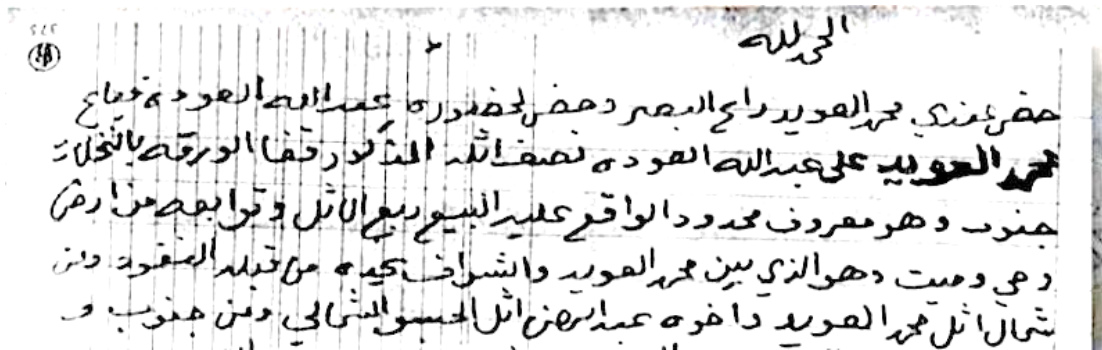 الحمد لله
حضر عندي محمد العويد رايح البصر وحضر لحضوره عبدالله العوده فباع
محمد العويد على عبدالله العوده نصف اثله المذكور قفا الورقه بالنخلات
جنوب وهو معروف محدود الواقع عليه البيع ربع الاثل وتوابعه من ارض
وحي وميت وهو الذي بين محمد العويد والشراف يحده من قبله النفود ومن
شمال اثل محمد العويد واخوه عبدالرحمن اثل الحبس الشمالي ومن جنوب و